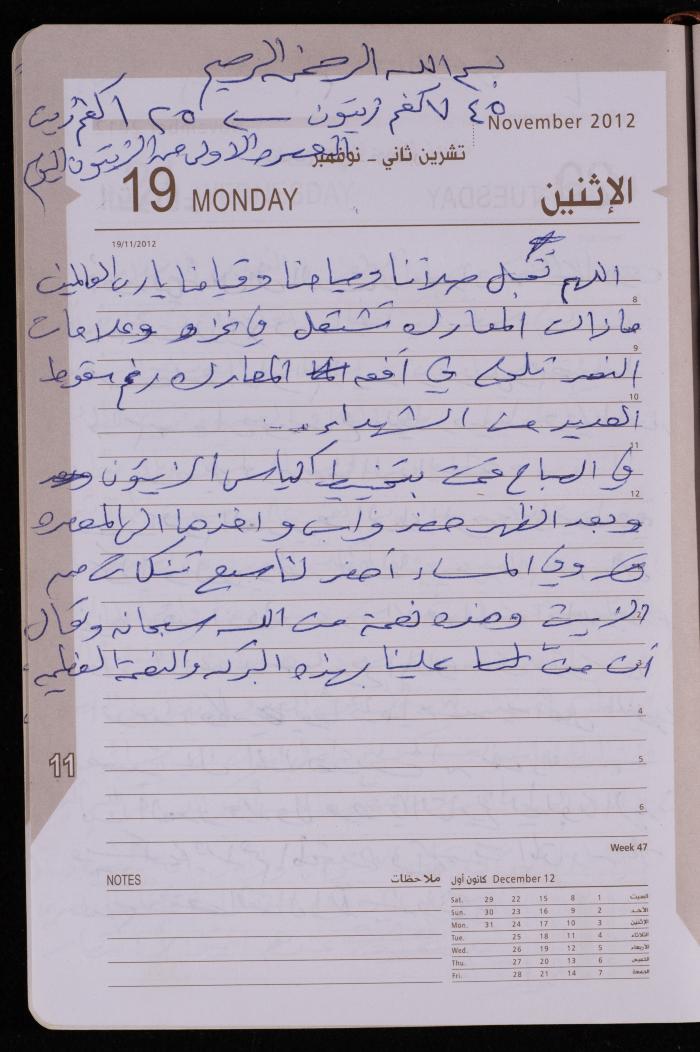 بسم الله الرحمن الرحيم
٧٤٥ كغم زيتون ← ١٢٥ كغم زيت
November 2012
المعصره الاولى من الزيتون اليوم
تشرين ثاني - نوفمبر
19 MONDAY
الإثنين
19/11/2012
اللهم تقبل صلاتنا وصيامنا وقيامنا يا رب العالمين
8
مازالت المعارك تشتعل في غزه وعلامات
9
النصر تلوح في أفق المعارك رغم سقوط
10
العديد من الشهداء...
11
في الصباح قمت بتخييط أكياس الزيتون
12
وبعد الظهر حضر واخذها الى المعصره
وفي المساء أحضر لنا سبع تنكات من
الزيت وهذه نعمة من الله سبحانه وتعالى
أن منّ علينا بهذه البركه والنعمة العظيمه
4
11
5
6
Week 47
NOTES
ملاحظات
December 12 كانون أول
Sat. 29 22 15 8 1 السبت
Sun. 30 23 16 9 2 الأحد
Mon. 31 24 17 10 3 الإثنين
Tue. 25 18 11 4 الثلاثاء
Wed. 26 19 12 5 الأربعاء
Thu. 27 20 13 6 الخميس
Fri. 28 21 14 7 الجمعة